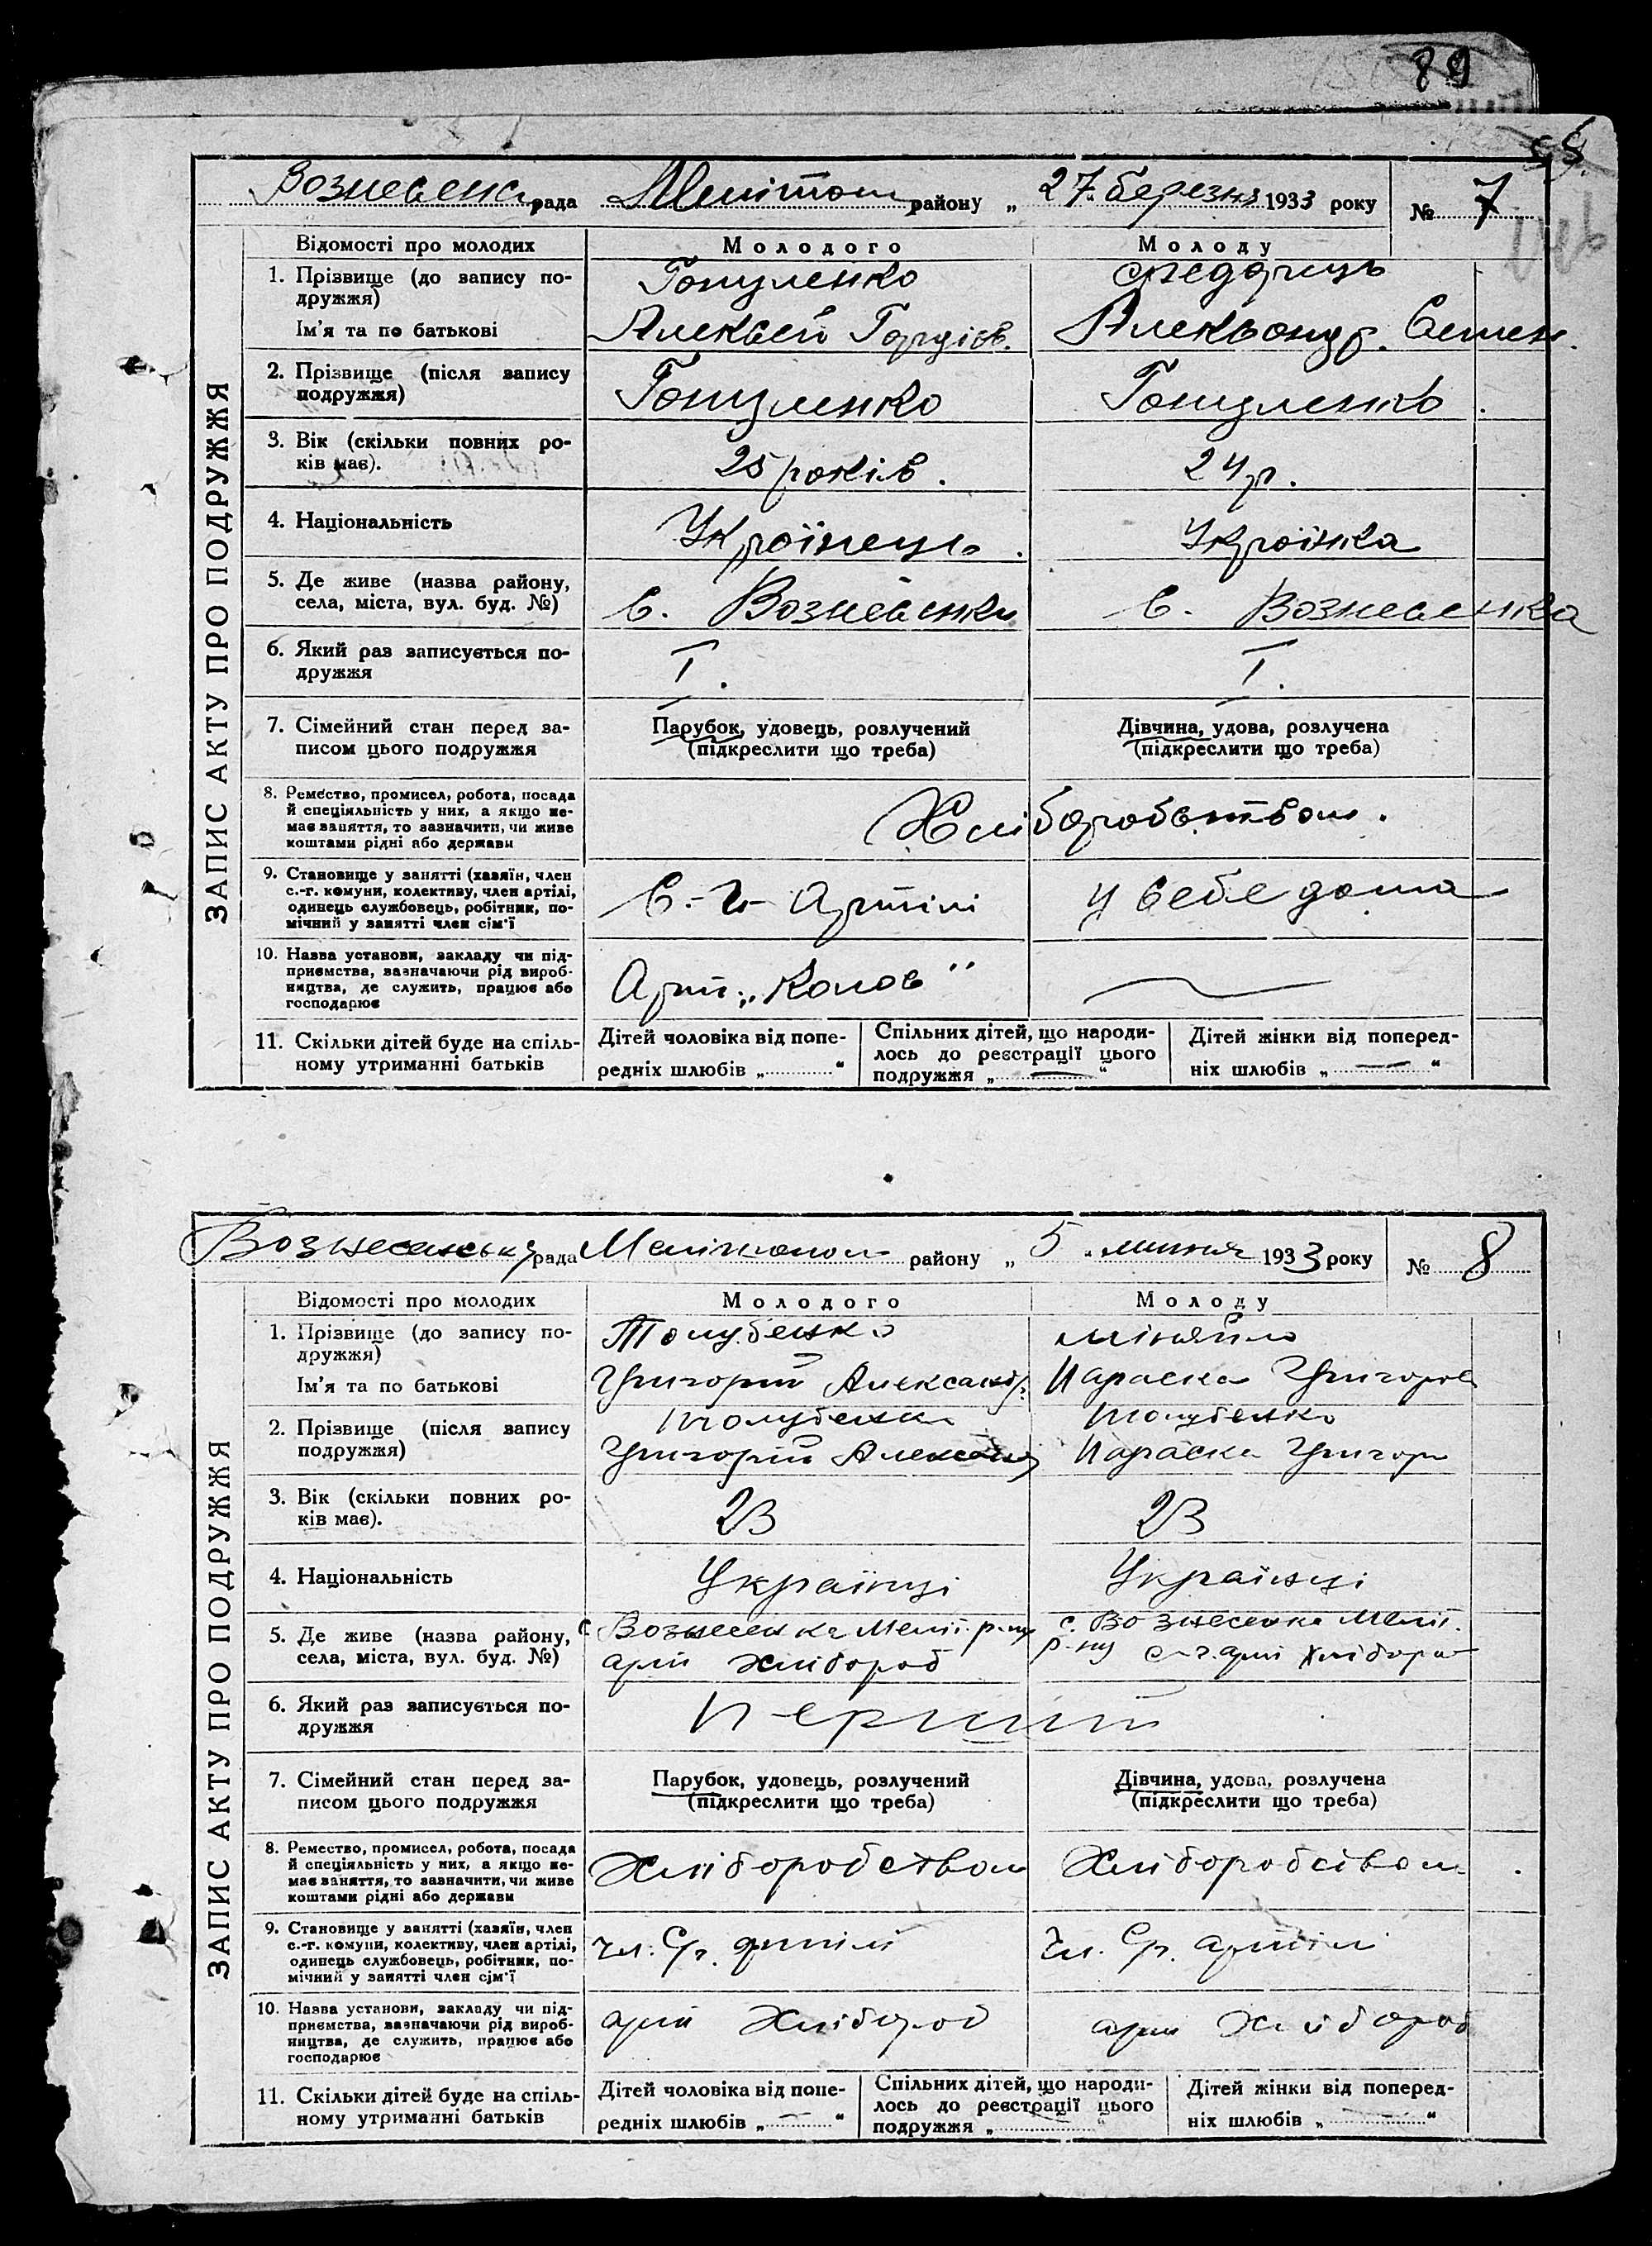 89
Вознесенс рада Мелітоп району „ 27 „ березня 1933 року № 7
ЗАПИС АКТУ ПРО ПОДРУЖЖЯ
Відомості про молодих Молодого Молоду
1. Прізвище (до запису по-
дружжя)
Ім'я та по батькові Алексей Гордієв. Александр. Семен.
2. Прізвище (після запису
подружжя)
3. Вік (скільки повних ро-
ків має). 25 років. 24 р.
4. Національність Українець. Українка
5. Де живе (назва району,
села, міста, вул. буд. №) с. Вознесенка с. Вознесенка
6. Який раз записується по-
дружжя І. І.
7. Сімейний стан перед за-
писом цього подружжя
Парубок, удовець, розлучений
(підкреслити що треба)
Дівчина, удова, розлучена
(підкреслити що треба)
8. Ремество, промисел, робота, посада
й спеціяльність у них, а якщо не-
має заняття, то зазначити, чи живе
коштами рідні або держави
Хліборобством.
9. Становище у занятті (хазяїн, член
с.-г. комуни, колективу, член артілі,
одинець службовець, робітник, по-
мічний у занятті член сім'ї
С.-г. Артілі у себе дома
10. Назва установи, закладу чи під-
приємства, зазначаючи рід вироб-
ництва, де служить, працює або
господарює
Арт. „Колос"
11. Скільки дітей буде на спіль-
ному утриманні батьків
Дітей чоловіка від попе-
редніх шлюбів „ “
Спільних дітей, що народи-
лось до реєстрації цього
подружжя „ — “
Дітей жінки від поперед-
ніх шлюбів „ — “
Вознесенську рада Мелітопол району „ 5 „ липня 1933 року № 8
ЗАПИС АКТУ ПРО ПОДРУЖЖЯ
Відомості про молодих Молодого Молоду
1. Прізвище (до запису по-
дружжя) Голубенко Міняйло
Ім'я та по батькові Григорій Александр. Параска Григоров
2. Прізвище (після запису Голубенко Голубенко
подружжя) Григорій Александ Параска Григор
3. Вік (скільки повних ро-
ків має). 23 23
4. Національність Українці Українці
5. Де живе (назва району,
села, міста, вул. буд. №)
с Вознесенка Меліт. р-ну
арт хлібороб
с. Вознесенка Меліт.
р-ну с-г. арт Хлібороб
6. Який раз записується по-
дружжя Перший
7. Сімейний стан перед за-
писом цього подружжя
Парубок, удовець, розлучений
(підкреслити що треба)
Дівчина, удова, розлучена
(підкреслити що треба)
8. Ремество, промисел, робота, посада
й спеціяльність у них, а якщо не-
має заняття, то зазначити, чи живе
коштами рідні або держави
Хліборобством Хліборобством
9. Становище у занятті (хазяїн, член
с.-г. комуни, колективу, член артілі,
одинець службовець, робітник, по-
мічний у занятті член сім'ї
чл. Сг. артілі чл. Сг. артілі
10. Назва установи, закладу чи під-
приємства, зазначаючи рід вироб-
ництва, де служить, працює або
господарює
арт Хлібороб арт Хлібороб
11. Скільки дітей буде на спіль-
ному утриманні батьків
Дітей чоловіка від попе-
редніх шлюбів „ — “
Спільних дітей, що народи-
лось до реєстрації цього
подружжя „ “
Дітей жінки від поперед-
ніх шлюбів „ — “